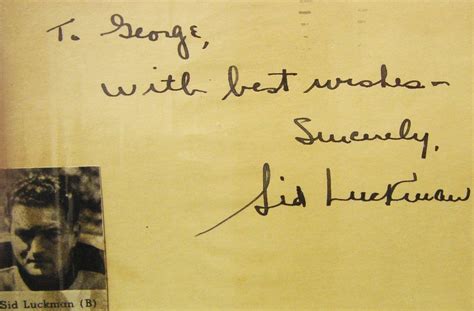 To George,
With best wishes-
Sincerely,
Sid Luckman
Sid Luckman (B)